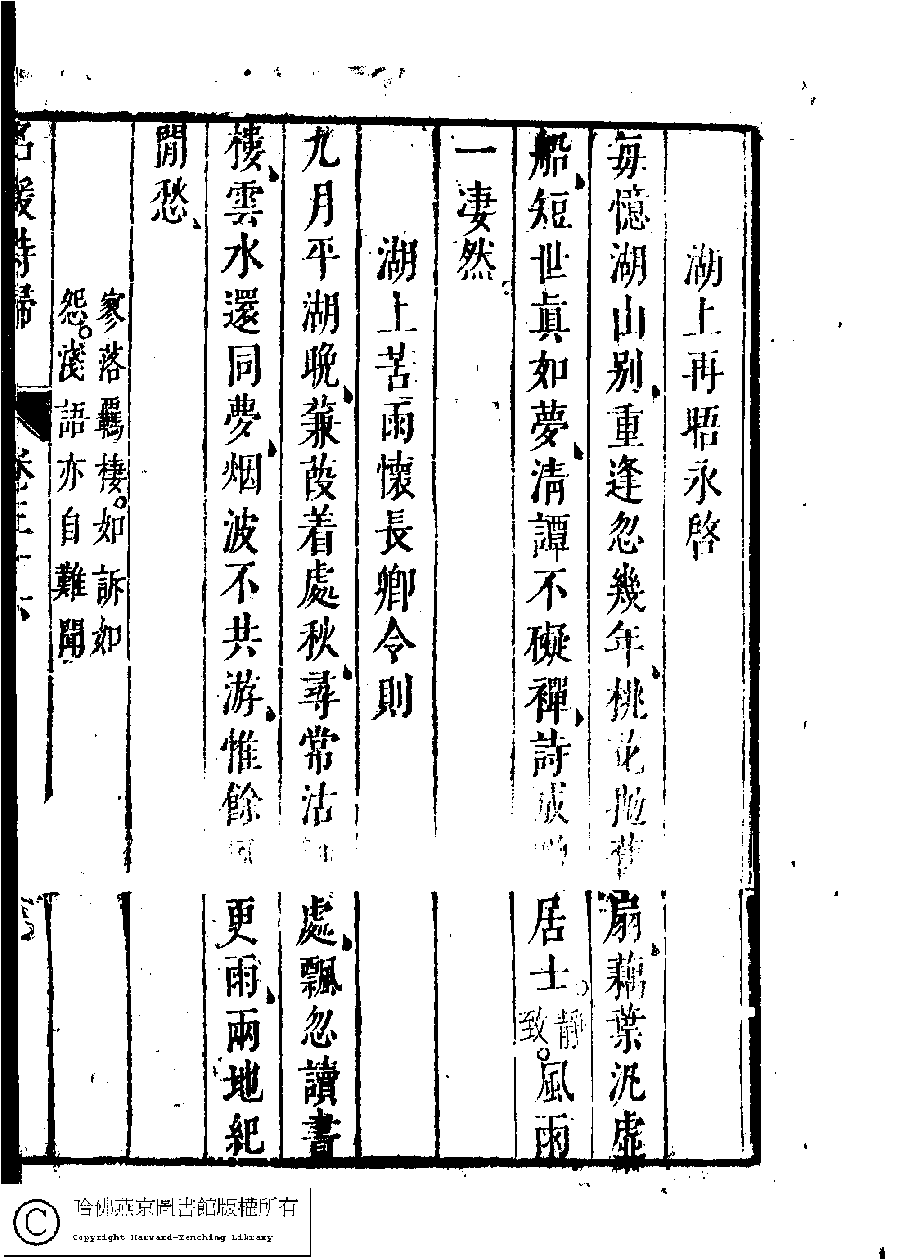 湖上再晤永啓
每憶湖山別重逢忽幾年桃花拋舊扇藕葉汎虛
船短世眞如夢清譚不礙禪詩成居士靜致風雨
一凄然
湖上苦雨懷長卿令則
九月平湖晚蒹葭着處秋尋常沽處飄忽讀書
樓雲水還同夢烟波不共游惟餘更雨兩地紀
閒愁
寥落羈棲如訴如
怨淺語亦自難聞
名媛詩歸
卷三十六
哈佛燕京圖書館版權所有
Copyright Harvard-Yenching Library